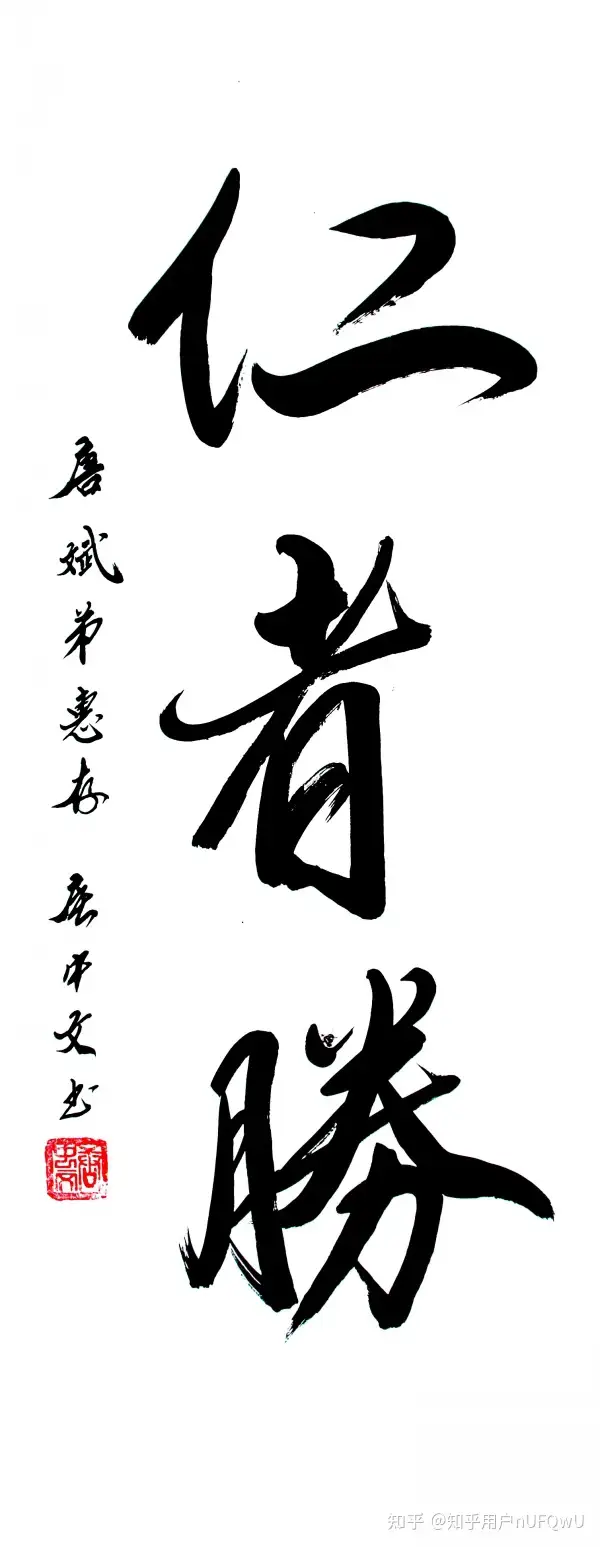 仁者勝
唐斌弟惠存 唐中文书
唐中文
知乎 @知乎用户nUFQwU